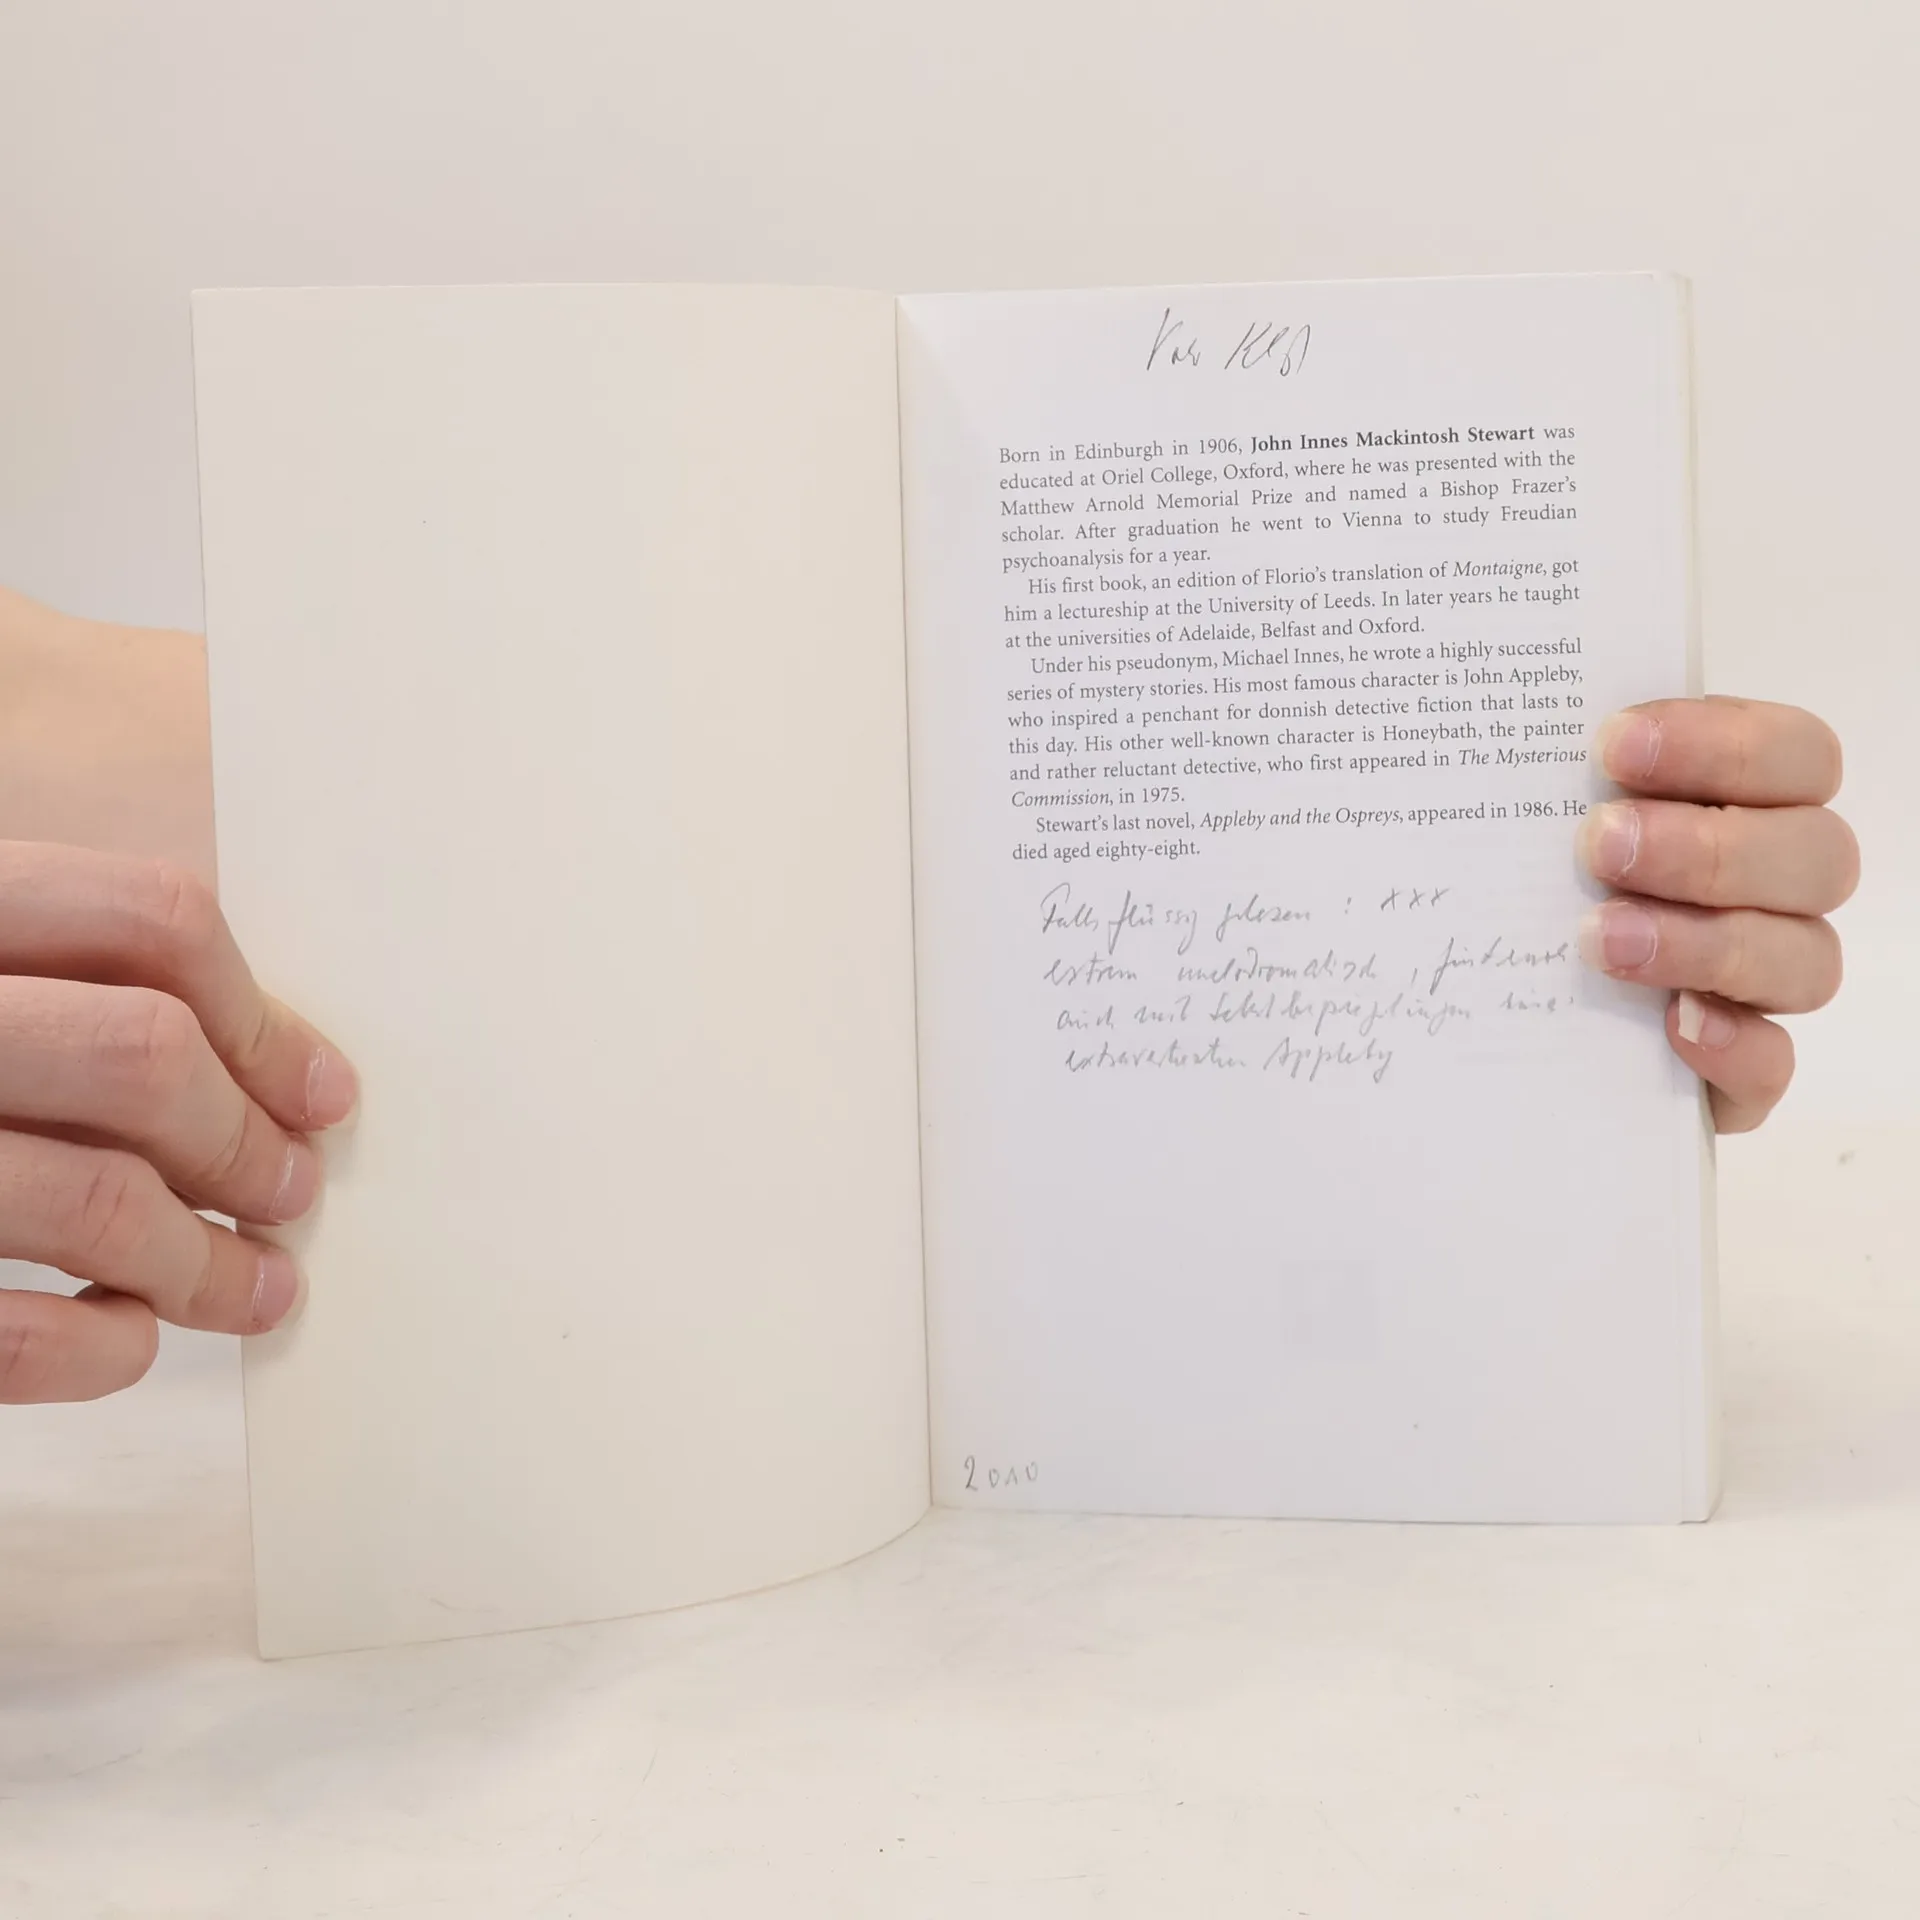 Born in Edinburgh in 1906, John Innes Mackintosh Stewart was
educated at Oriel College, Oxford, where he was presented with the
Matthew Arnold Memorial Prize and named a Bishop Frazer's
scholar. After graduation he went to Vienna to study Freudian
psychoanalysis for a year.
His first book, an edition of Florio's translation of Montaigne, got
him a lectureship at the University of Leeds. In later years he taught
at the universities of Adelaide, Belfast and Oxford.
Under his pseudonym, Michael Innes, he wrote a highly successful
series of mystery stories. His most famous character is John Appleby,
who inspired a penchant for donnish detective fiction that lasts to
this day. His other well-known character is Honeybath, the painter
and rather reluctant detective, who first appeared in The Mysterious
Commission, in 1975.
Stewart's last novel, Appleby and the Ospreys, appeared in 1986. He
died aged eighty-eight.
Falls flüssig gelesen : xxx
extrem melodramatisch,
auch mit Selbstbespiegelungen
Appleby
2010